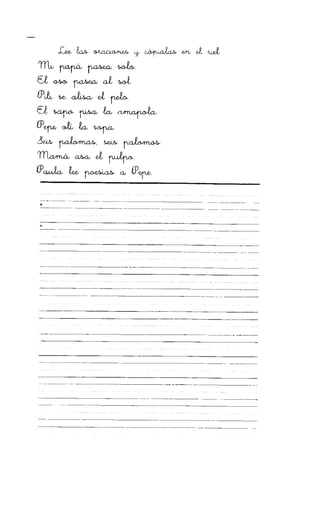 Lee las oraciones y cópialas en el riel
Mi papá pasea solo.
El oso pasea al sol.
Pili se alisa el pelo.
El sapo pisa la amapola.
Pepe olí la sopa.
Seis palomas, seis palomos.
Mamá asa el pulpo.
Paula lee poesías a Pepe.